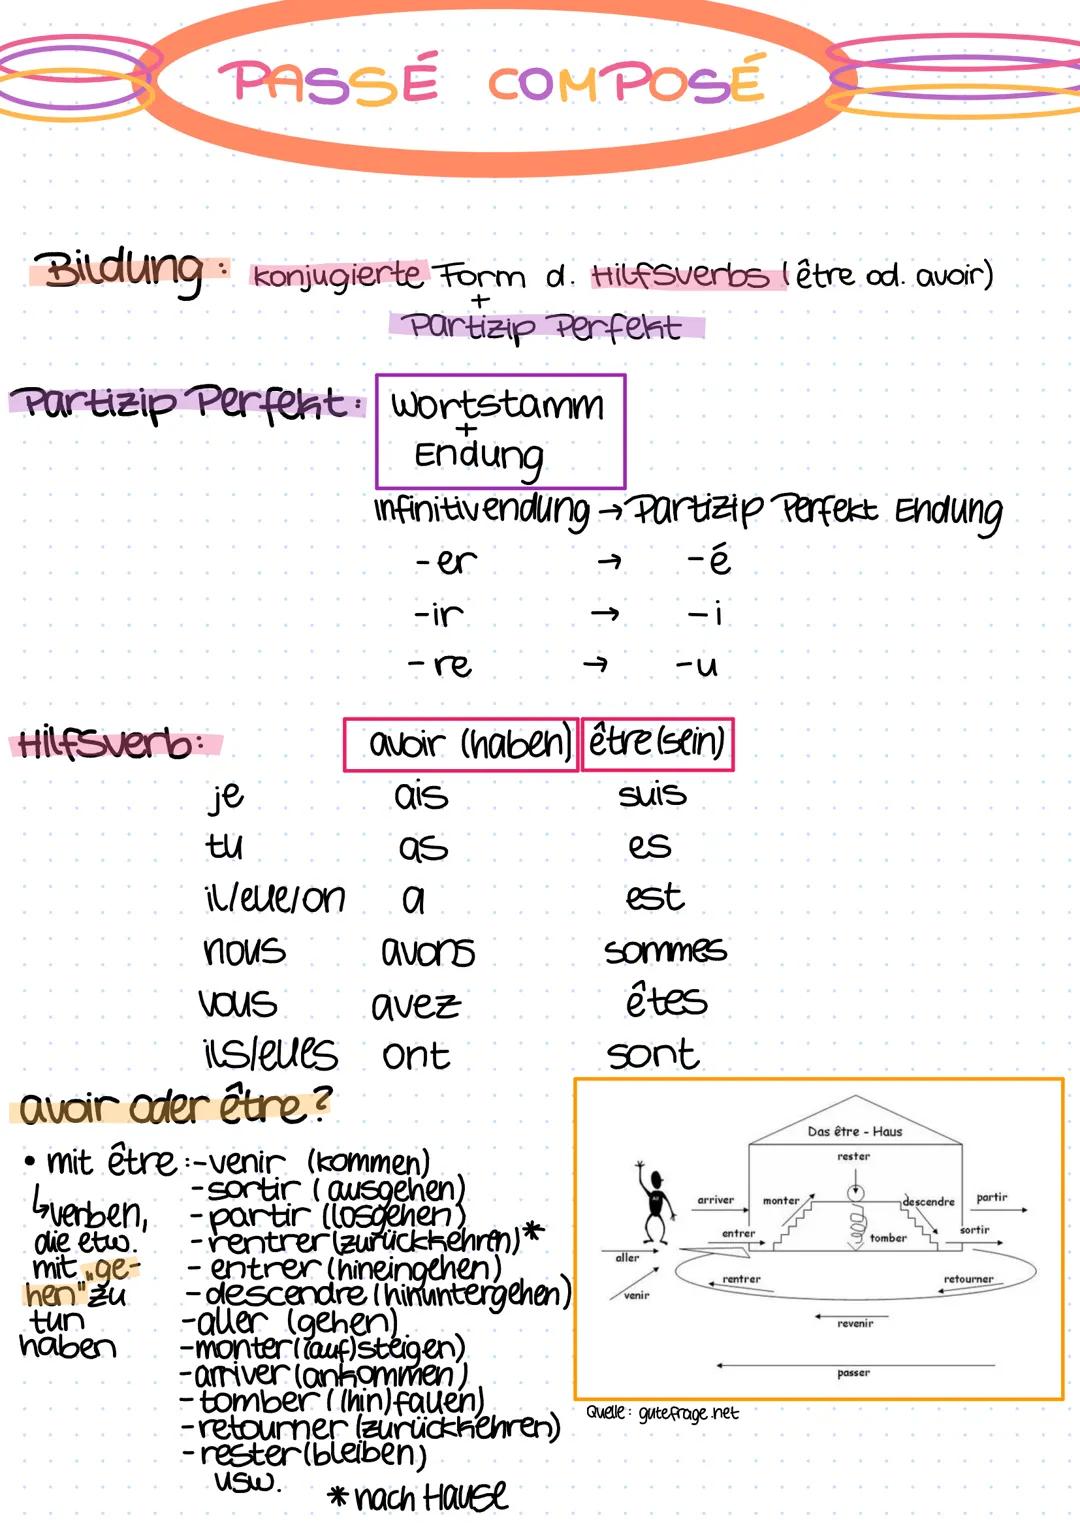 PASSÉ COMPOSÉ
Bildung: konjugierte Form d. Hilfsverbs (être od. avoir)
+
Partizip Perfekt
Partizip Perfekt: Wortstamm
+
Endung
Infinitivendung → Partizip Perfekt Endung
-er → -é
-ir → -i
-re → -u
Hilfsverb: avoir (haben) être (sein)
je ais suis
tu as es
il/elle/on a est
nous avons sommes
vous avez êtes
ils/elles ont sont
avoir oder être?
• mit être: -venir (kommen)
-sortir (ausgehen)
↳verben, -partir (losgehen)
die etw. -rentrer (zurückkehren)*
mit „ge- -entrer (hineingehen)
hen" zu -descendre (hinuntergehen)
tun -aller (gehen)
haben -monter ((auf)steigen)
-arriver (ankommen)
-tomber ((hin)fallen)
-retourner (zurückkehren)
-rester (bleiben)
usw.
*nach Hause
Das être - Haus
rester
arriver monter descendre partir
entrer tomber sortir
aller
rentrer retourner
venir
revenir
passer
Quelle: gutefrage.net